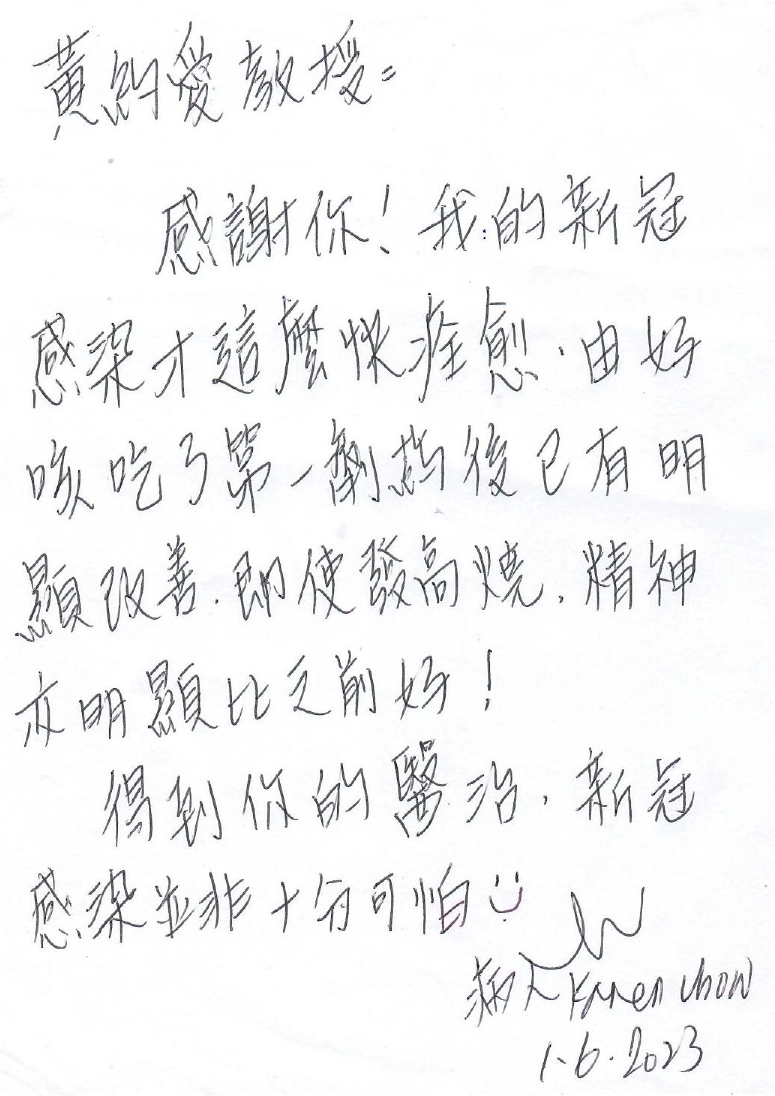 黃鈞愛教授：
感謝你！我的新冠
感染才這麼快痊愈．由好
咳吃了第一劑葯後已有明
顯改善．即使發高燒．精神
亦明顯比之前好！
得到你的醫治．新冠
感染並非十分可怕
病人 Karen Chow
1.6.2023